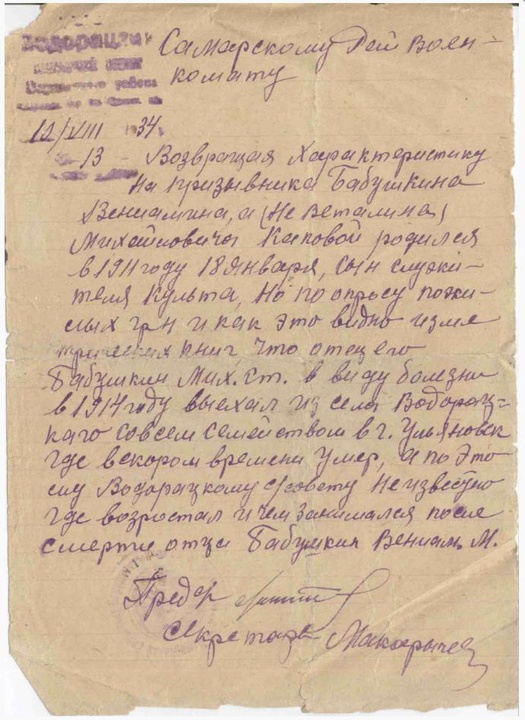 Водорацкий
сельский совет
района
Самарскому Рай Воен-
комату
12/VIII 1934
13 - Возвращая Характеристику
на призывника Бабушкина
Вениамина, а (не Веталина)
Михайловича Каковой родился
в 1911 году 18 января, сын служи-
теля культа, Но по опросу пожи-
лых грн и как это видно изме
трических книг что отец его
Бабушкин Мих. Ст. в виду болезни
в 1914 году выехал из села Водорац-
каго совсем семейством в г. Ульяновск
где вскором времени умер, а по это
му Водорацкому с/совету Неизвестно
где возростал и чем занимался после
смерти отца Бабушкин Вениам. М.
Предс
секретарь Макарычев